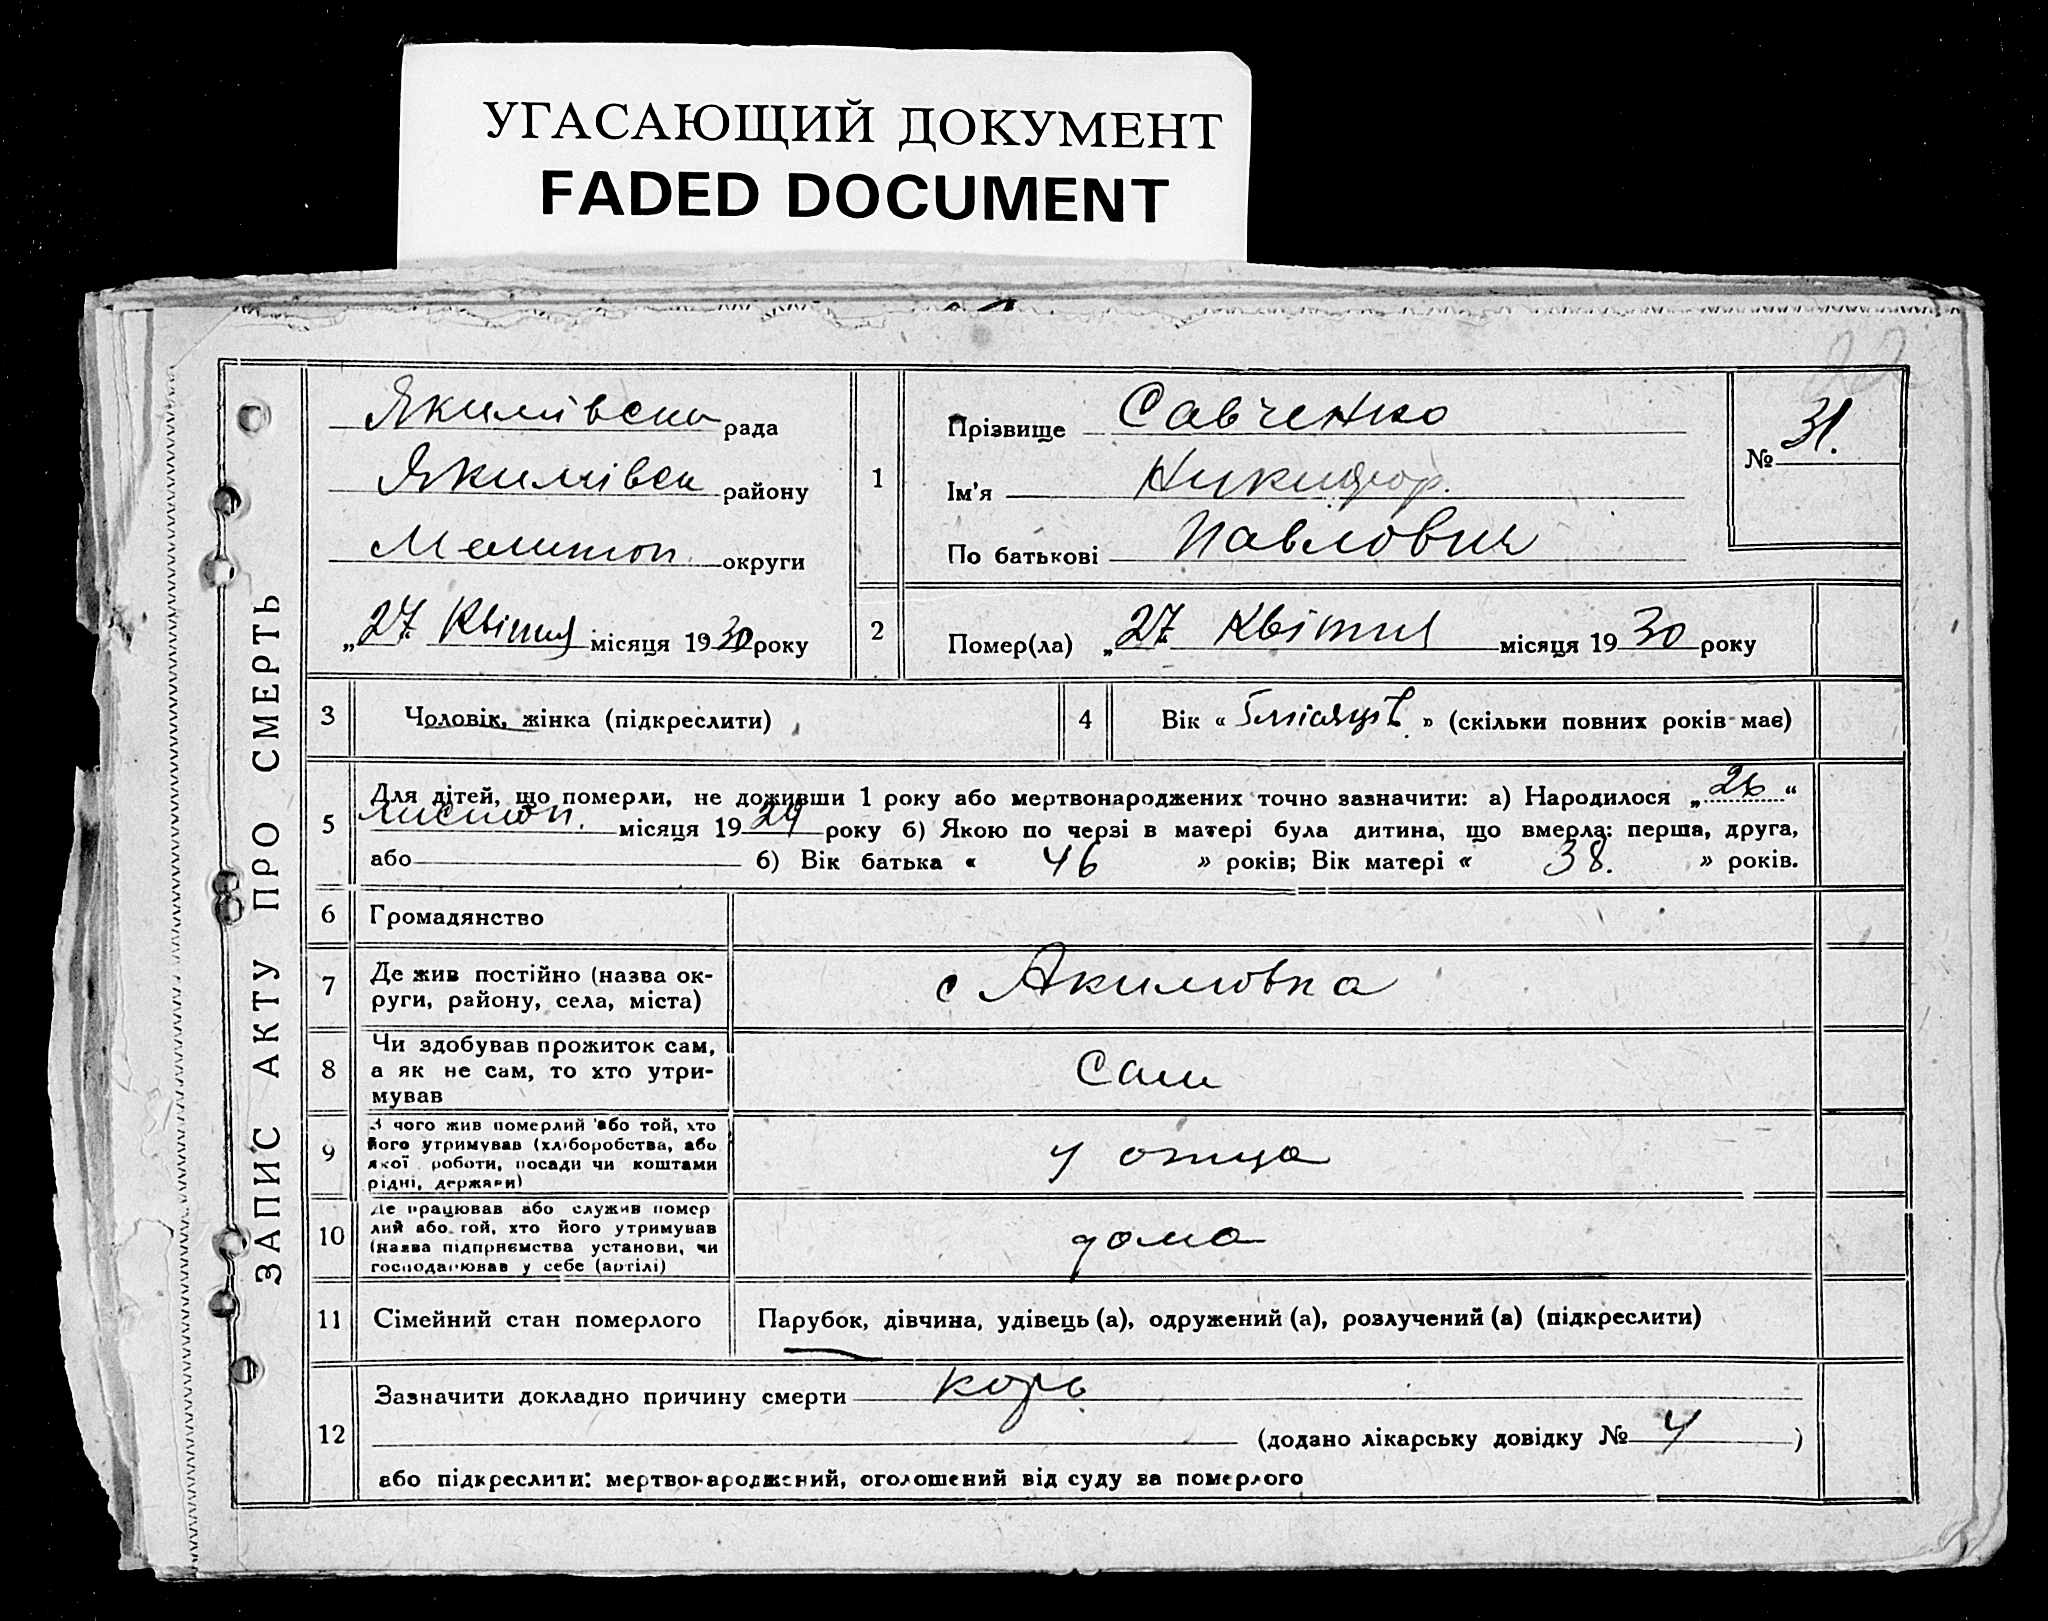 УГАСАЮЩИЙ ДОКУМЕНТ
FADED DOCUMENT
ЗАПИС АКТУ ПРО СМЕРТЬ
Якимівська рада
Якимівськ району
Мелитоп. округи
„27“ Квітня місяця 1930 року
1
Прізвище Савченко
Ім'я Никифор.
По батькові Павлович
№ 31.
2
Помер(ла) „27“ Квітня місяця 1930 року
3
Чоловік, жінка (підкреслити)
4
Вік « місяців » (скільки повних років має)
5
Для дітей, що померли, не доживши 1 року або мертвонароджених точно зазначити: а) Народилося „26“
листоп. місяця 1929 року б) Якою по черзі в матері була дитина, що вмерла: перша, друга,
або б) Вік батька « 46 » років; Вік матері « 38. » років.
6
Громадянство
7
Де жив постійно (назва ок-
руги, району, села, міста)
с Акимовка
8
Чи здобував прожиток сам,
а як не сам, то хто утри-
мував
Сам
9
З чого жив померлий або той, хто
його утримував (хліборобства, або
якої роботи, посади чи коштами
рідні, держави)
у отца
10
Де працював або служив помер
лий або той, хто його утримував
(назва підприємства установи, чи
господарював у себе (артілі)
дома
11
Сімейний стан померлого
Парубок, дівчина, удівець (а), одружений (а), розлучений (а) (підкреслити)
12
Зазначити докладно причину смерти корь
(додано лікарську довідку № 4 )
або підкреслити: мертвонароджений, оголошений від суду за померлого